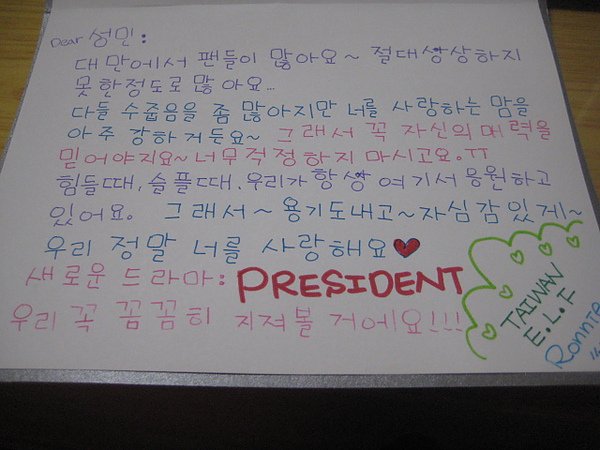 Dear 성민:
대만에서 팬들이 많아요~ 절대상상하지
못한정도로많아요...
다들 수줍음을 좀 많아지만 너를 사랑하는 맘을
아주 강하거든요~ 그래서 꼭 자신의매력을
믿어야지요~너무적정하지 마시고요.TT
힘들때,슬플때.우리가항상 여기서응원하고
있어요. 그래서~용기도내고~자심감있게~
우리 정말 너를 사랑해요♥
새로운 드라마: PRESIDENT
우리 꼭 꼼꼼히 지져볼 거에요!!!
TAIWAN
E.L.F
Ronnie